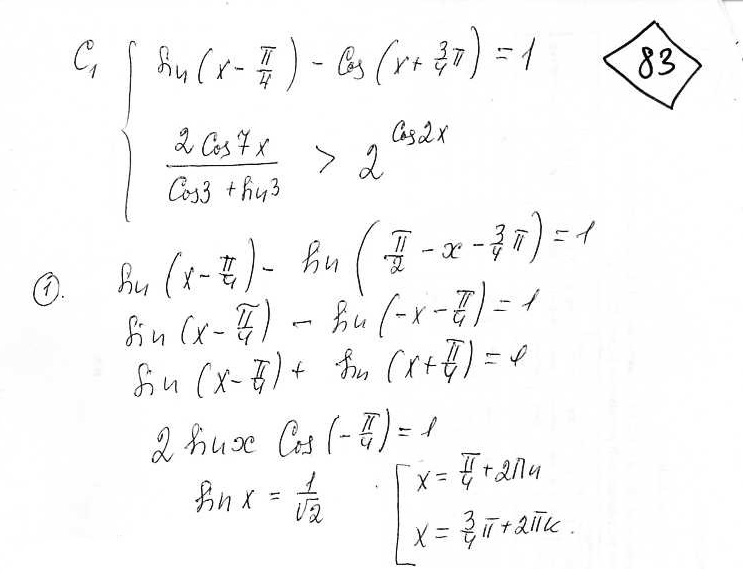 C₁ { sin(x - π/4) - cos(x + 3/4 π) = 1
83
2 cos 7x / (cos 3 + sin 3) > 2^(cos 2x)
①. sin(x - π/4) - sin(π/2 - x - 3/4 π) = 1
sin(x - π/4) - sin(-x - π/4) = 1
sin(x - π/4) + sin(x + π/4) = 1
2 sin x cos(-π/4) = 1
sin x = 1/√2 [ x = π/4 + 2πn
x = 3/4 π + 2πk.